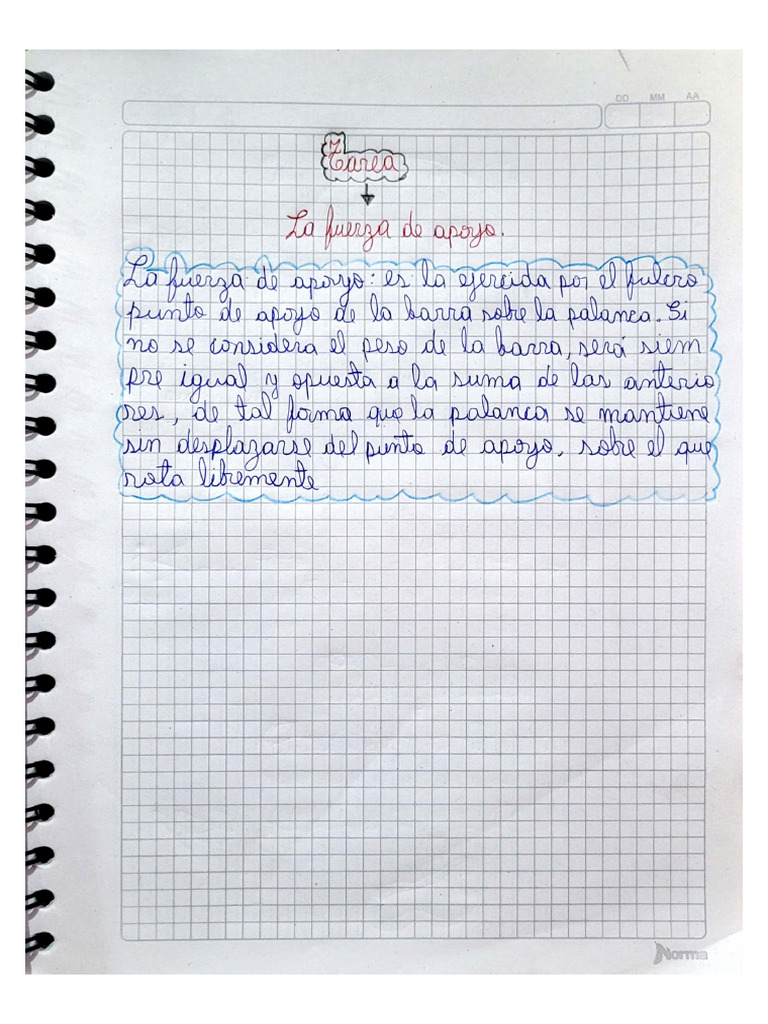 DD MM AA
Tarea
La fuerza de apoyo.
La fuerza de apoyo: es la ejercida por el fulcro
punto de apoyo de la barra sobre la palanca. Si
no se considera el peso de la barra, será siem
pre igual y opuesta a la suma de las anterio
res, de tal forma que la palanca se mantiene
sin desplazarse del punto de apoyo, sobre el que
rota libremente
Norma